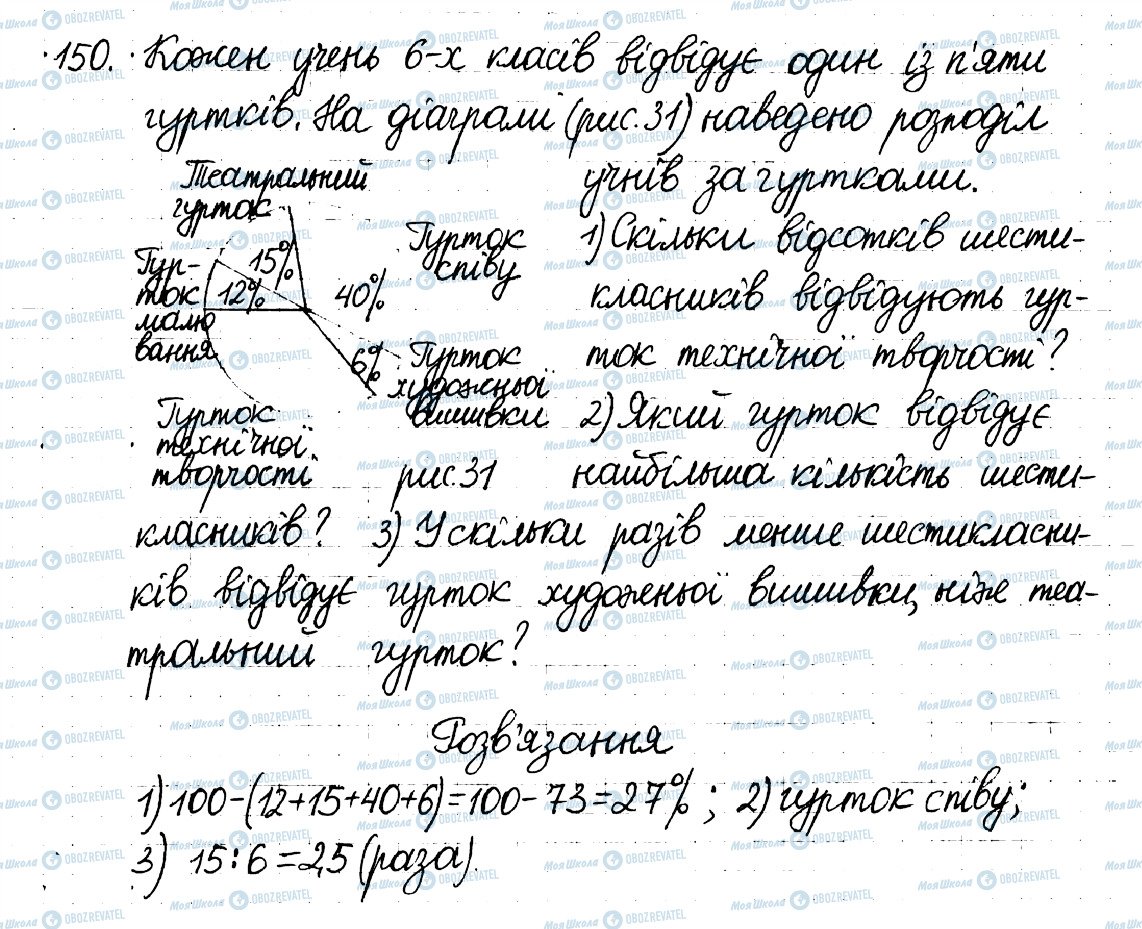 150. Кожен учень 6-х класів відвідує один із п'яти
гуртків. На діаграмі (рис.31) наведено розподіл
учнів за гуртками.
Театральний
гурток
15%
Гур-
ток
малю
вання
12%
40%
Гурток
співу
6%
Гурток
художньої
вишивки
Гурток
технічної
творчості
рис.31
1) Скільки відсотків шести-
класників відвідують гур-
ток технічної творчості?
2) Який гурток відвідує
найбільша кількість шести-
класників? 3) У скільки разів менше шестикласни-
ків відвідує гурток художньої вишивки, ніж теа-
тральний гурток?
Розв'язання
1) 100-(12+15+40+6)=100-73=27%; 2) гурток співу;
3) 15:6=2,5 (раза).
МояШкола OBOZREVATEL